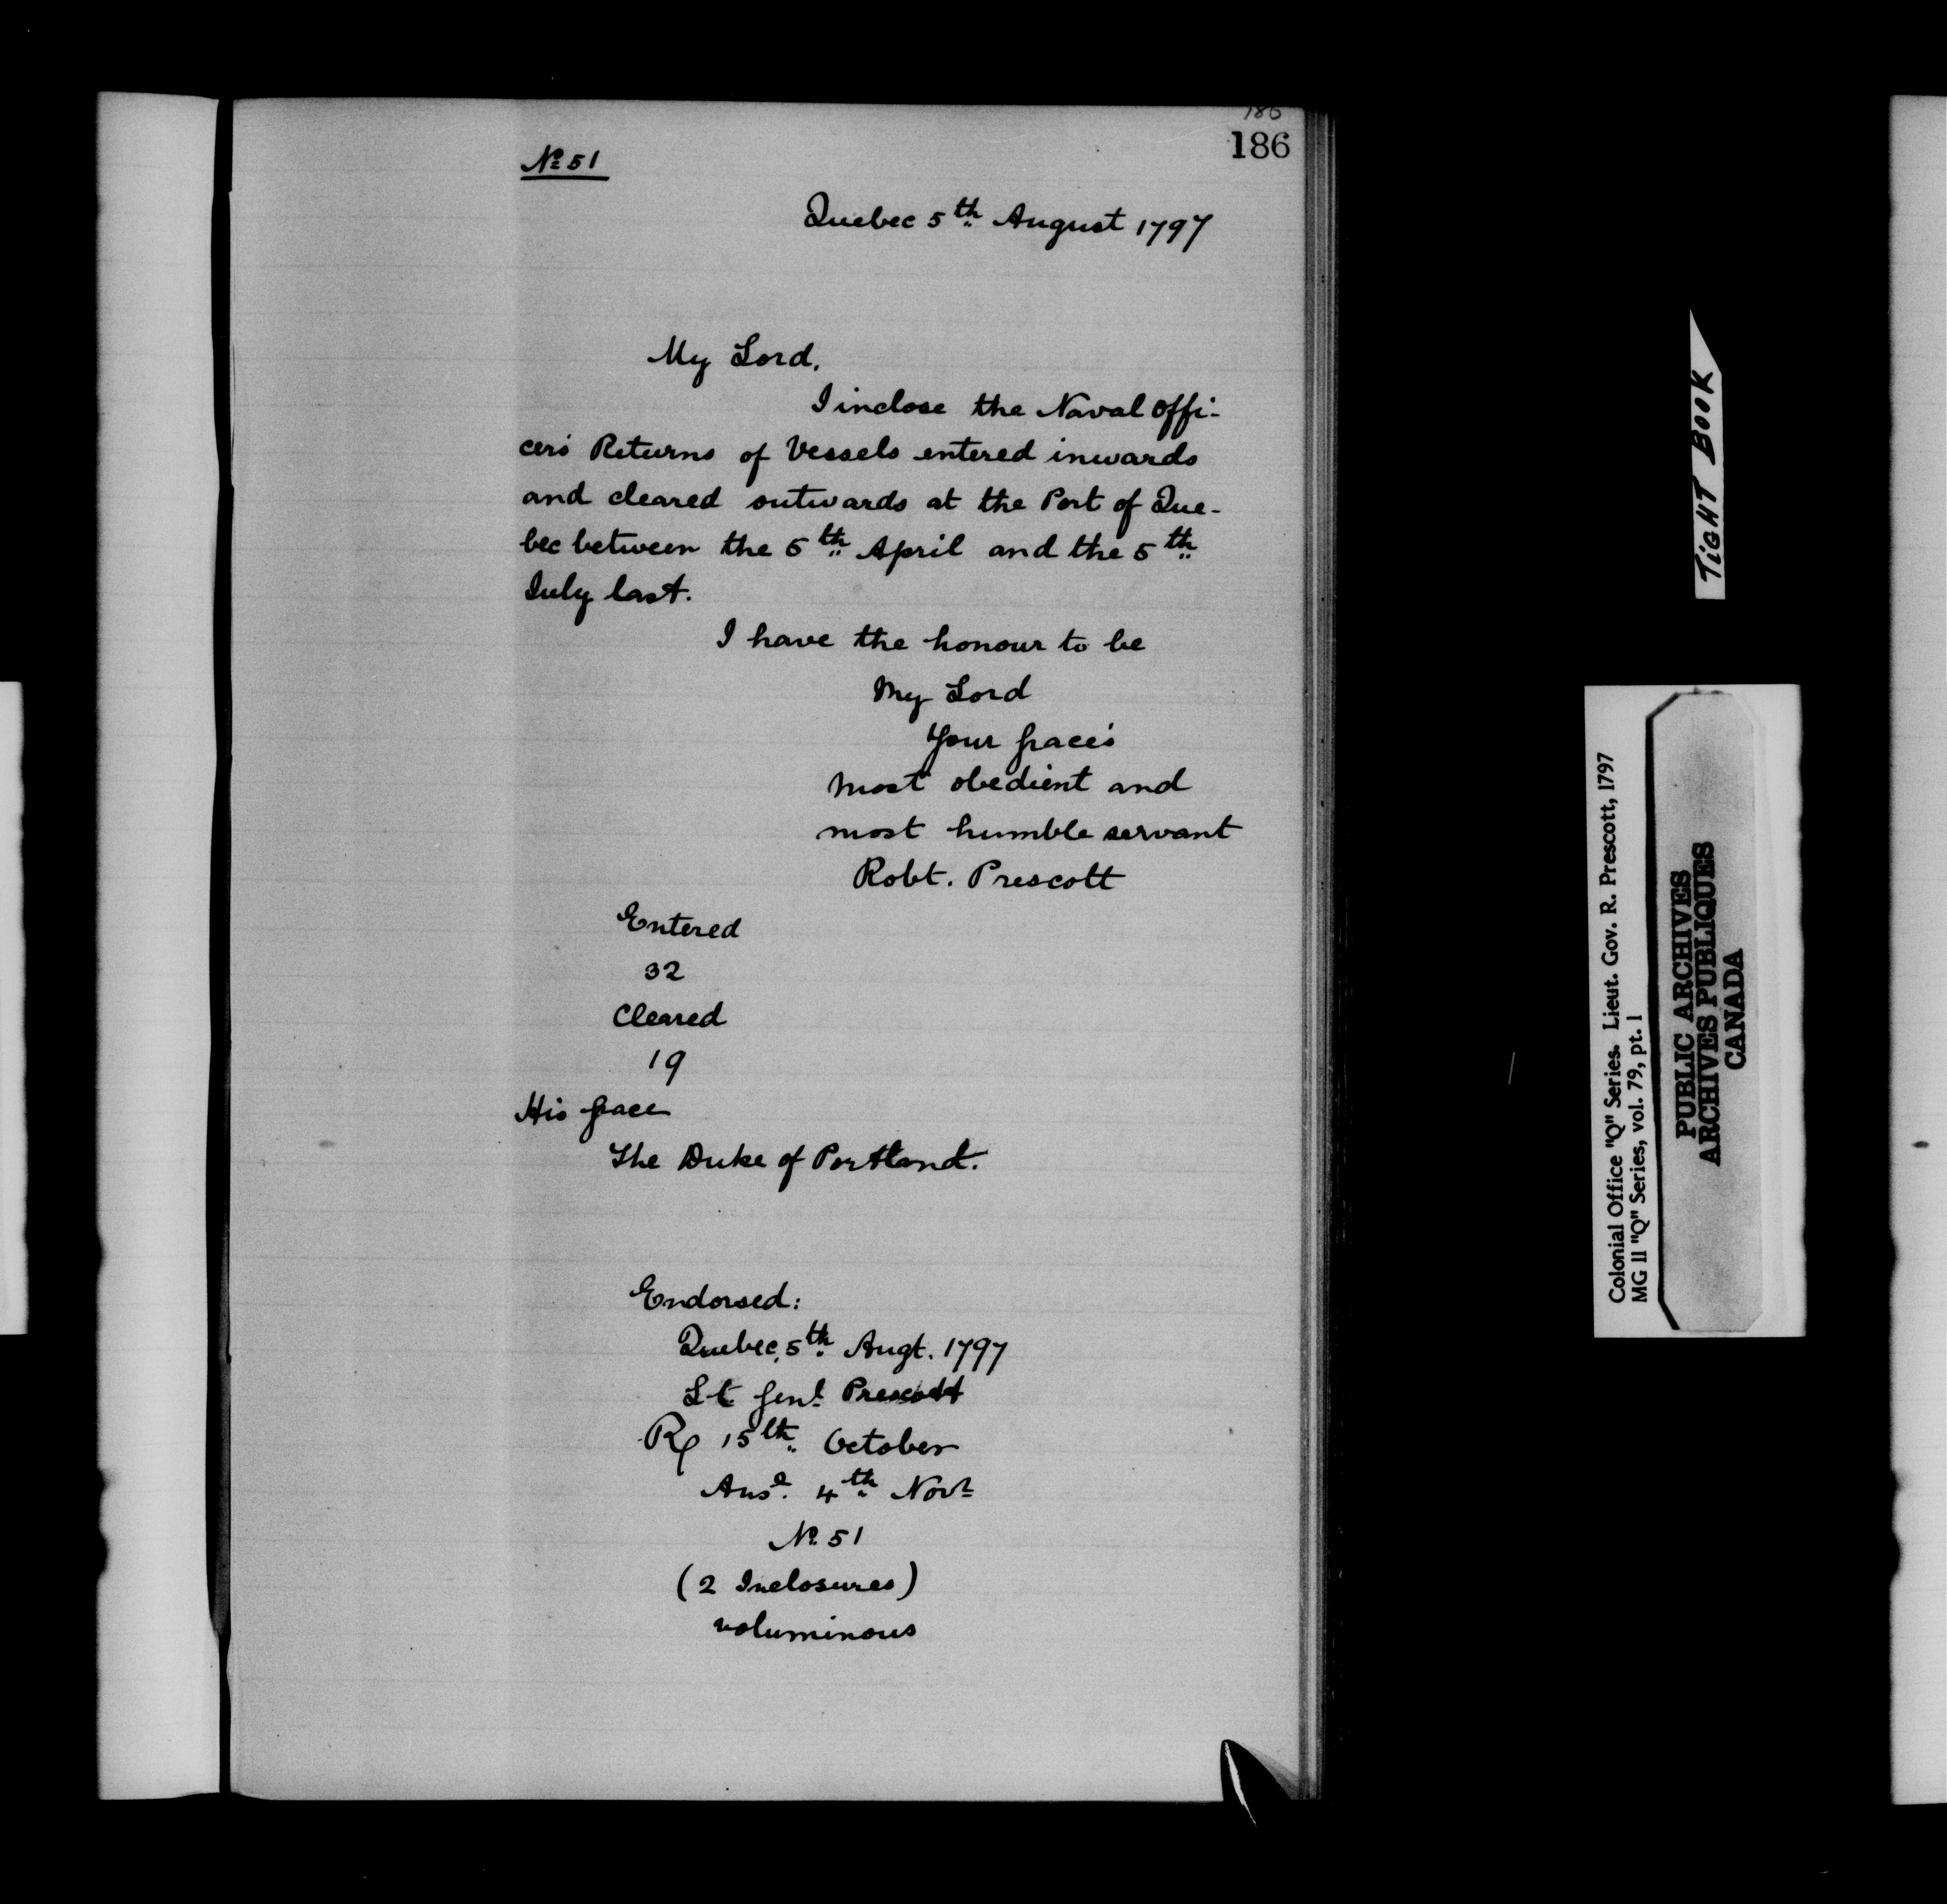 186
186
No 51
Quebec 5th August 1797
My Lord,
I inclose the Naval Offi-
cer's Returns of Vessels entered inwards
and cleared outwards at the Port of Que-
bec between the 5th April and the 5th
July last.
I have the honour to be
My Lord
Your Grace's
most obedient and
most humble servant
Robt. Prescott
Entered
32
Cleared
19
His Grace
The Duke of Portland.
Endorsed:
Quebec, 5th Augt. 1797
Lt Genl Prescott
R 15th October
Ansd. 4th Novr
No 51
(2 Inclosures)
voluminous
TIGHT BOOK
Colonial Office "Q" Series. Lieut. Gov. R. Prescott, 1797
MG 11 "Q" Series, vol. 79, pt. 1
PUBLIC ARCHIVES
ARCHIVES PUBLIQUES
CANADA